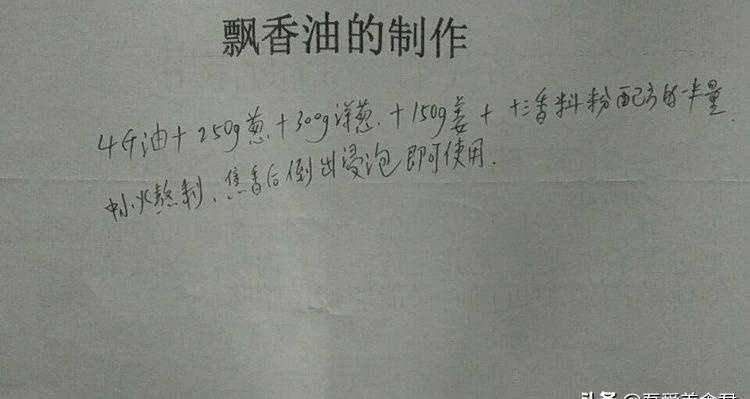 飘香油的制作
4斤油+250g葱+300g洋葱.+150g姜+十三香料粉配方的一半量.
中小火熬制、焦香后倒出浸泡即可使用.
头条@吾爱美食君